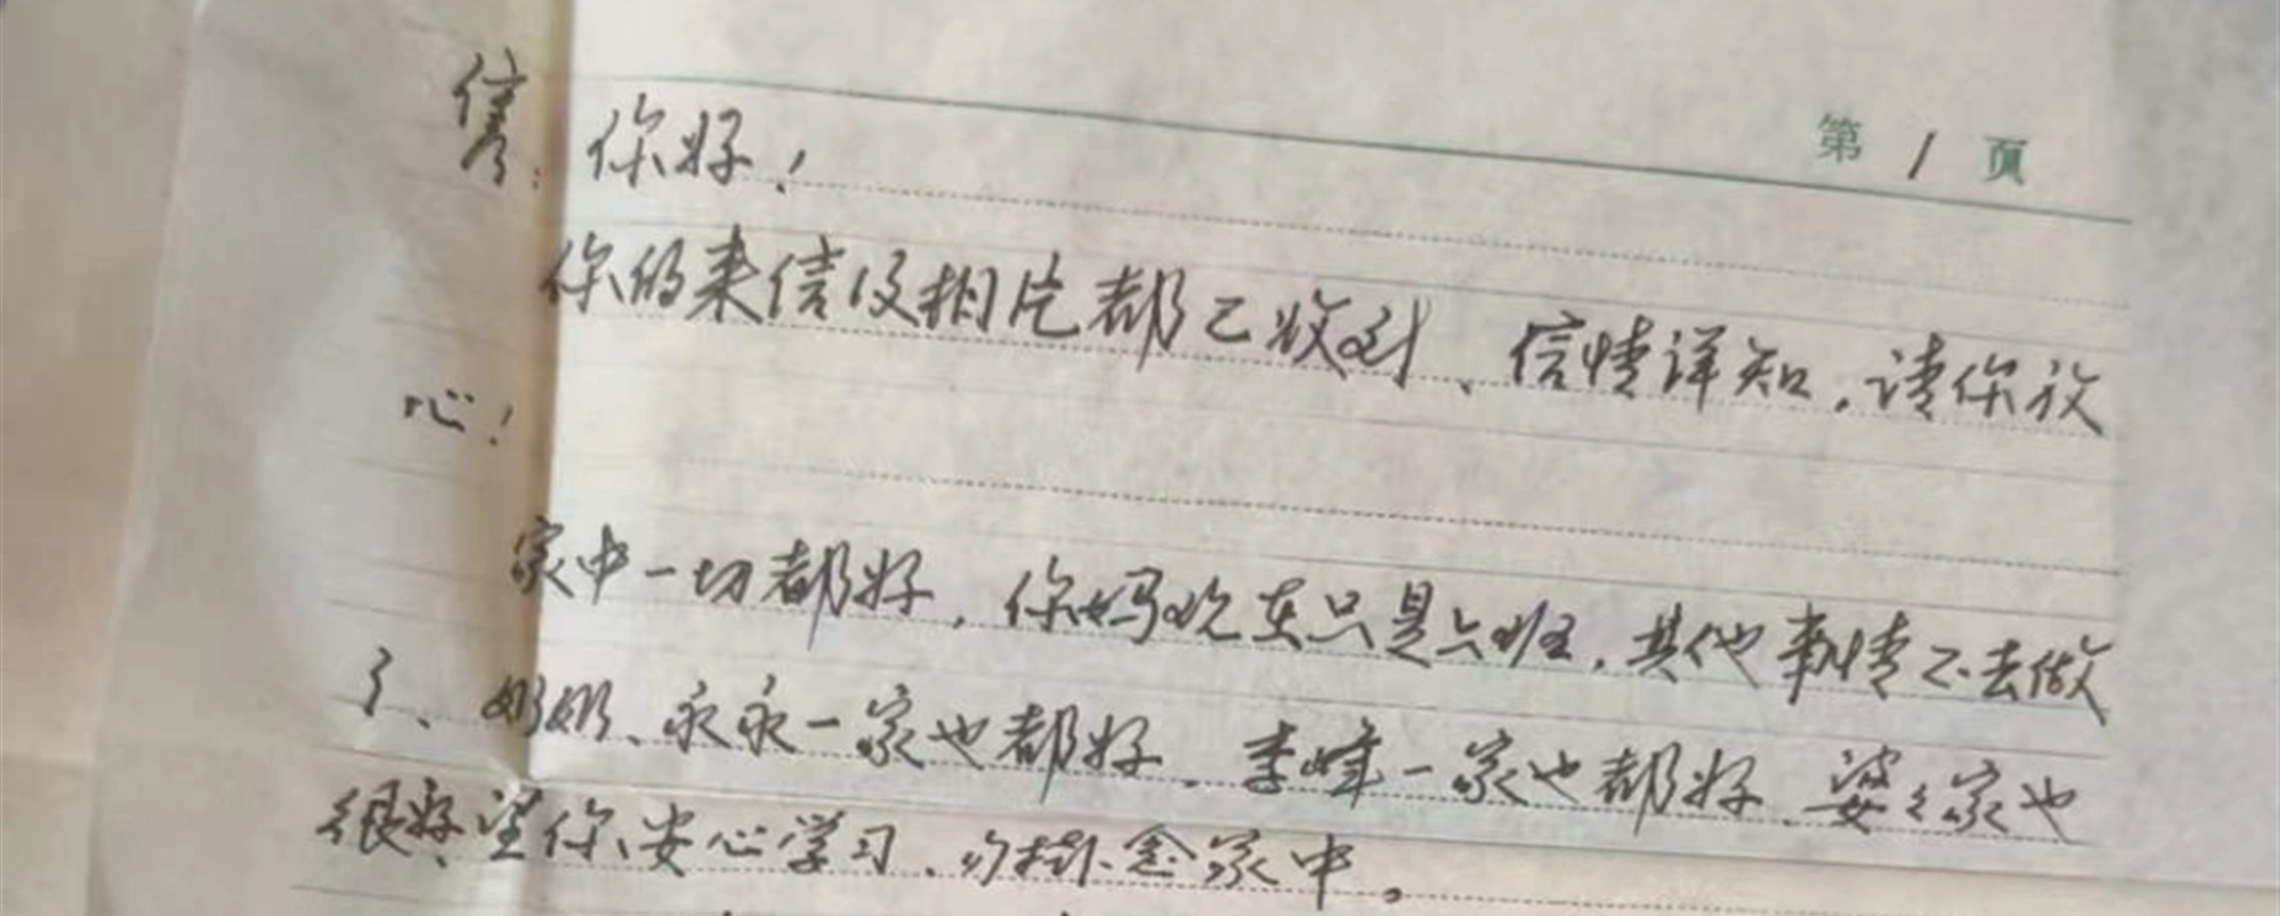 第1页
倩：你好！
你的来信及相片都已收到、信情详知，请你放
心！
家中一切都好，你妈现在只是上班，其他事情不去做
了、奶奶、永永一家也都好、李峰一家也都好、婆々家也
很好、望你安心学习、勿掛念家中。